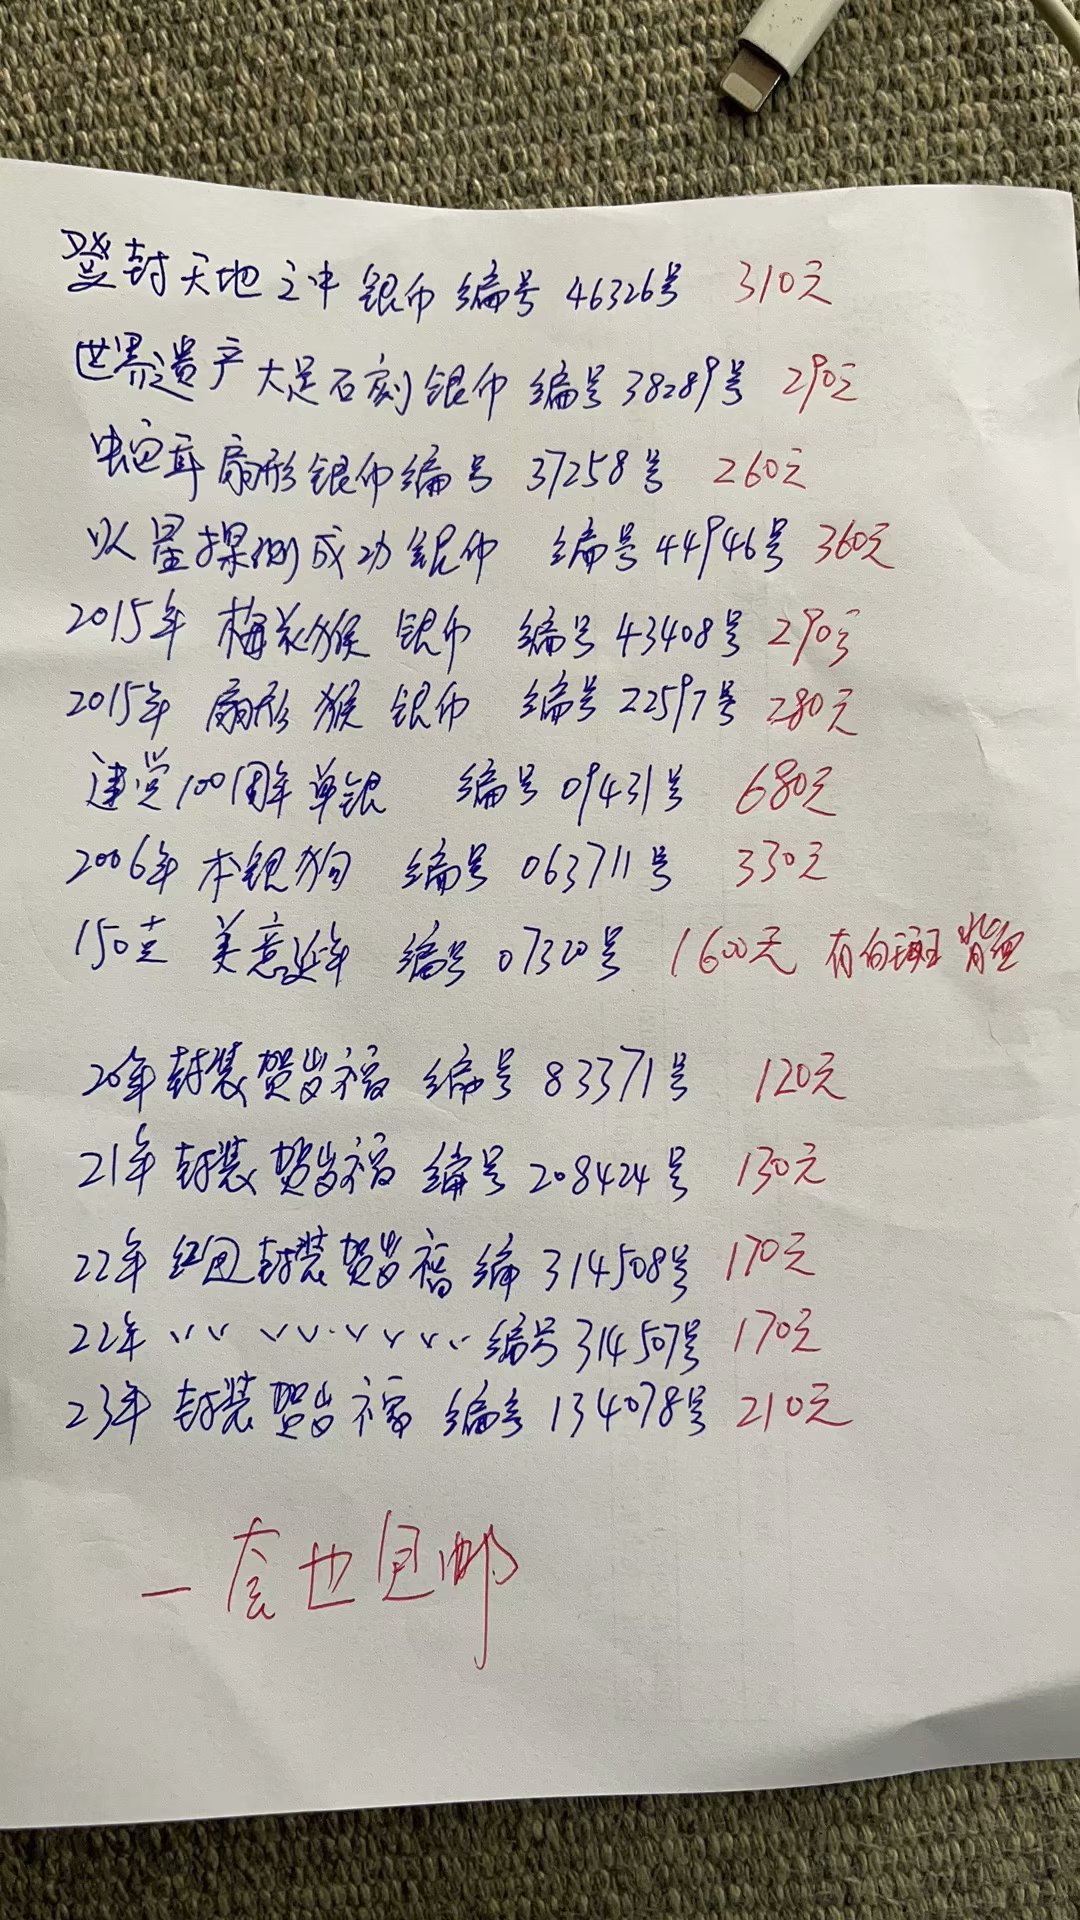 登封天地之中 银币 编号 46326号 310元
世界遗产 大足石刻 银币 编号 38289号 290元
蛇年 扇形 银币 编号 37258号 260元
火星探测成功 银币 编号 44946号 360元
2015年 梅花猴 银币 编号 43408号 290元
2015年 扇形 猴 银币 编号 22597号 280元
建党100周年 单银 编号 09431号 680元
2006年 本银狗 编号 063711号 330元
150克 美意延年 编号 07320号 1600元 有白斑
20年 封装 贺岁福 编号 83371号 120元
21年 封装 贺岁福 编号 208424号 130元
22年 红包 封装 贺岁福 编 314508号 170元
22年 〃 〃 〃 〃 〃 〃 编号 314507号 170元
23年 封装 贺岁福 编号 134078号 210元
一套也包邮